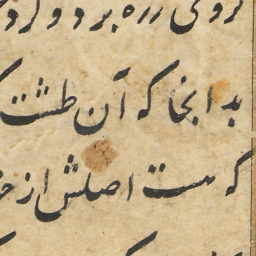 کروی زره بر دو کرد
بدانجا که آن طشت
که هست اصلش از